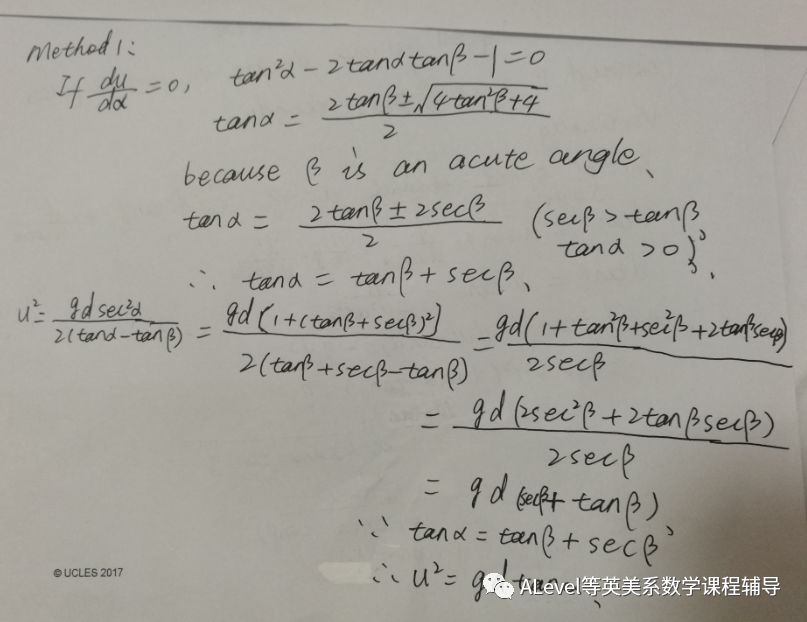 Method 1:
If du/dα = 0, tan²α - 2tanα tanβ - 1 = 0
tanα = (2tanβ ± √(4tan²β + 4))/2
because β is an acute angle、
tanα = (2tanβ ± 2secβ)/2 (secβ > tanβ
tanα > 0)
∴ tanα = tanβ + secβ、
u² = gd sec²α/2(tanα - tanβ) = gd[1 + (tanβ + secβ)²]/2(tanβ + secβ - tanβ) = gd(1 + tan²β + sec²β + 2tanβsecβ)/2secβ
= gd(2sec²β + 2tanβsecβ)/2secβ
= gd(secβ + tanβ)
∵ tanα = tanβ + secβ
∴ u² = gd
© UCLES 2017
ALevel等英美系数学课程辅导